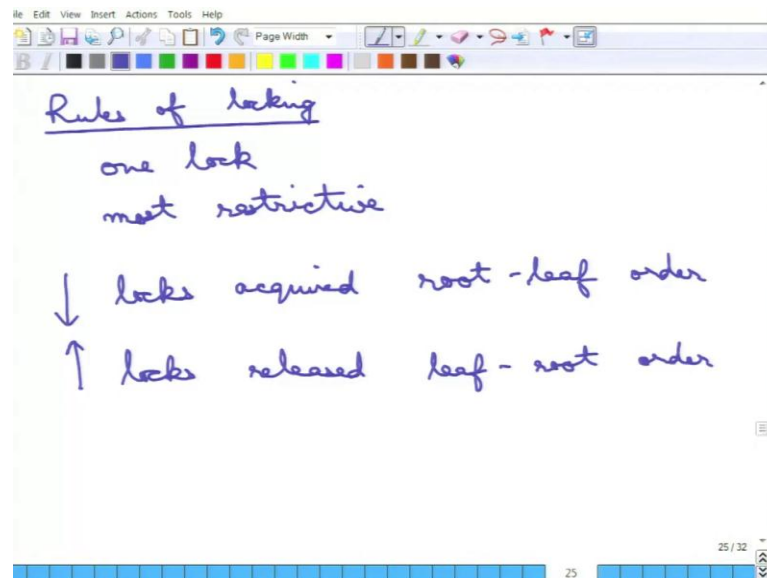 ile Edit View Insert Actions Tools Help
Page Width
B I
Rules of locking
one lock
most restrictive
↓ locks acquired root-leaf order
↑ locks released leaf-root order
25/32
25